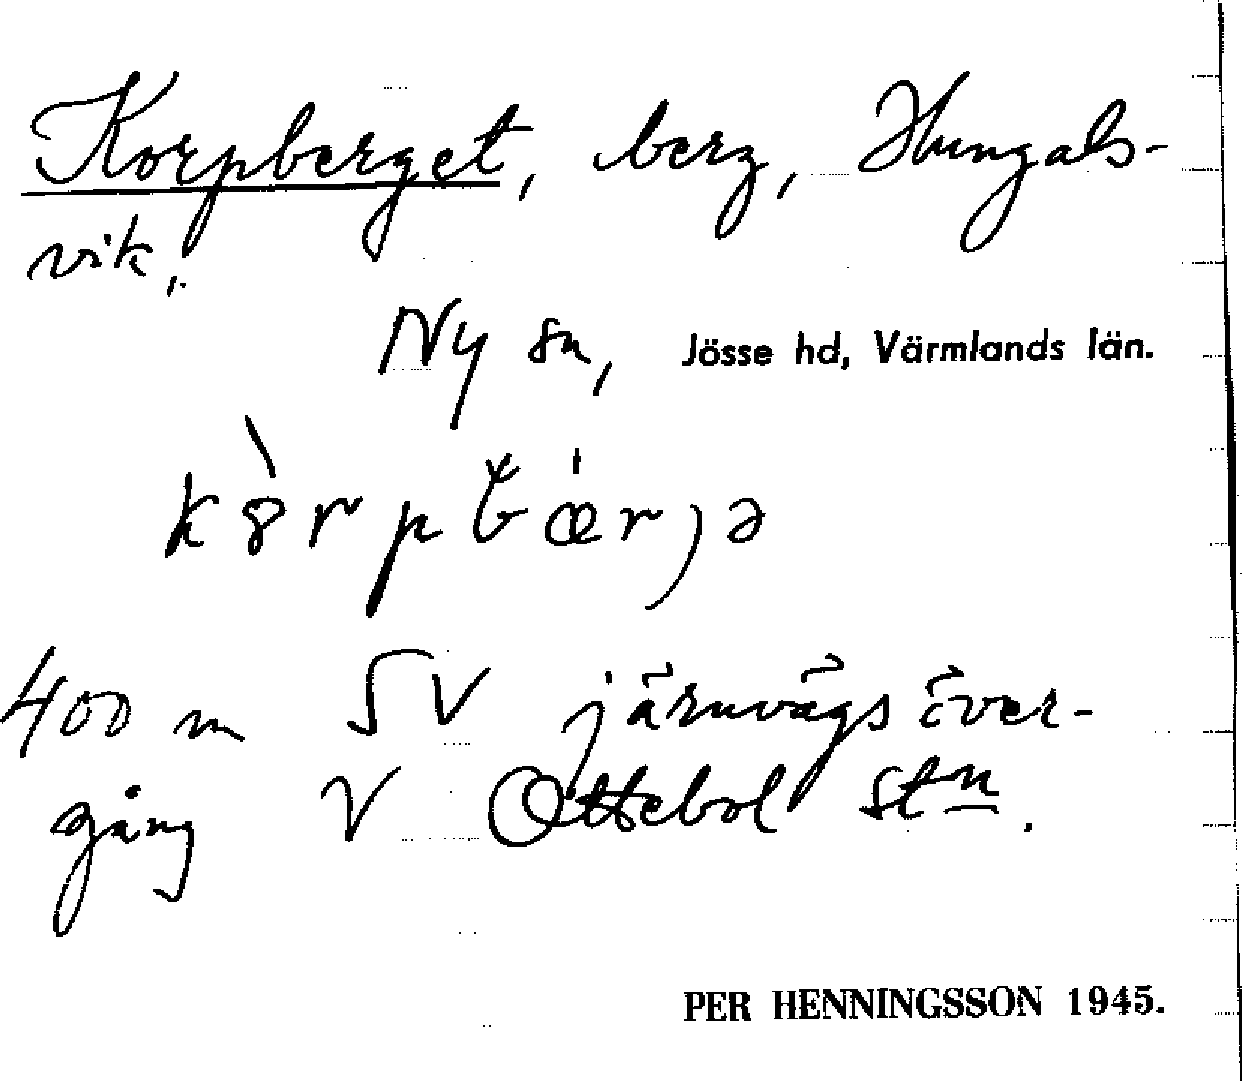 Korpberget, berg, Hungals-
vik,
Ny sn, Jösse hd, Värmlands län.
400 m SV järnvägsöver-
gång V Ottebol stn.
PER HENNINGSSON 1945.